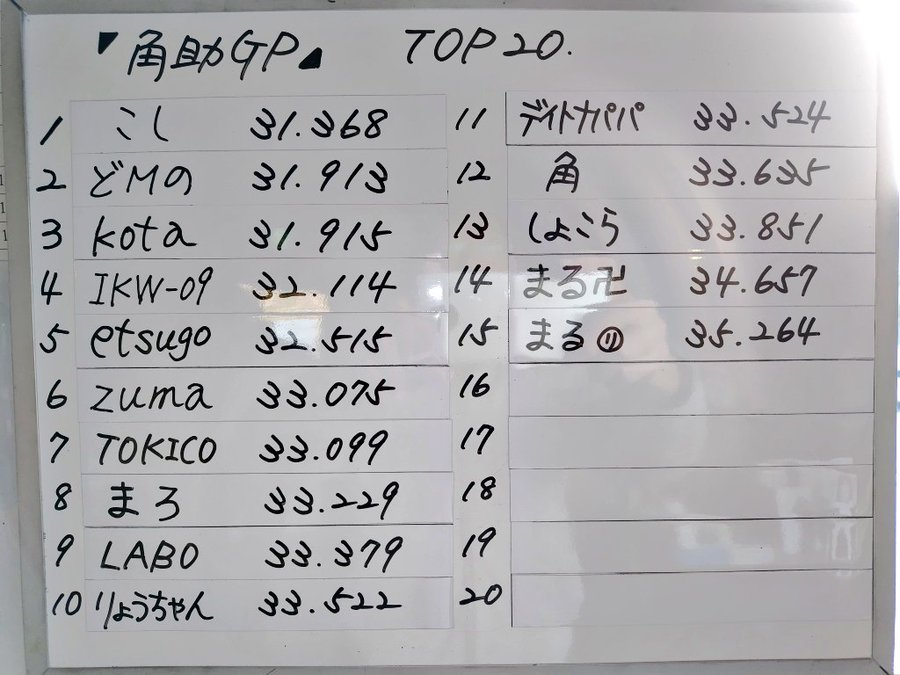 「角助GP」 TOP20.
1 こし 31.368
2 どMの 31.913
3 kota 31.915
4 IKW-09 32.114
5 etsugo 32.515
6 zuma 33.075
7 TOKICO 33.099
8 まろ 33.229
9 LABO 33.379
10 りょうちゃん 33.522
11 デイトナパパ 33.524
12 角 33.635
13 しょこら 33.851
14 まる卍 34.657
15 まる⑪ 35.264
16
17
18
19
20